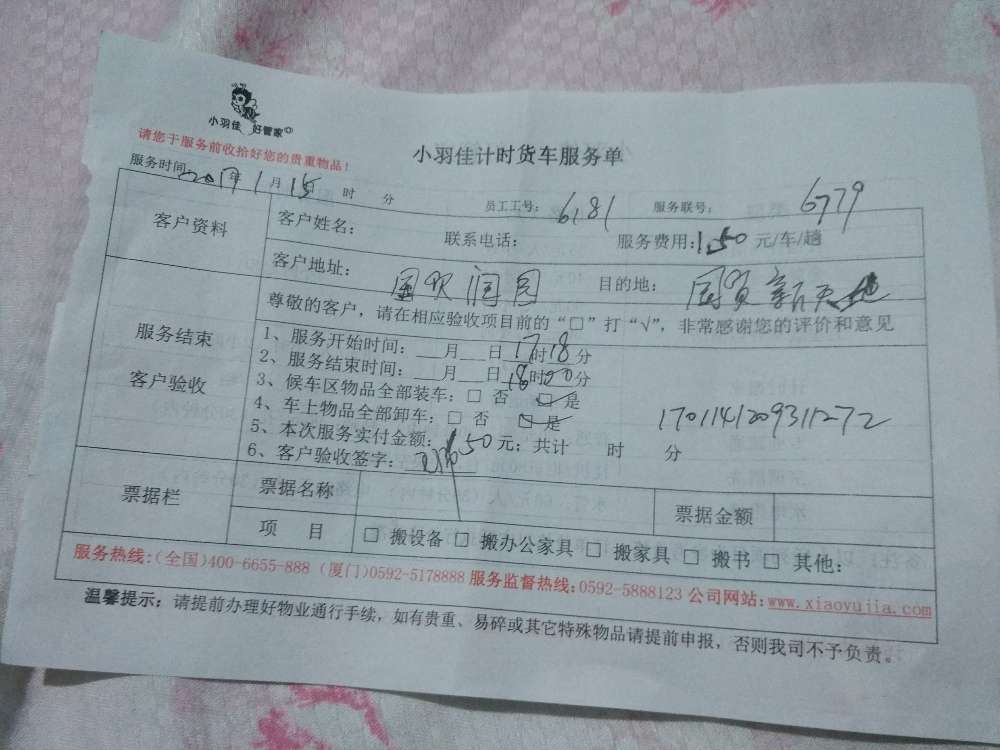 小羽佳 好管家
请您于服务前收拾好您的贵重物品！
小羽佳计时货车服务单
服务时间 2017年 1月 15日 时 分 员工工号: 6181 服务联号: 6779
客户资料 客户姓名: 联系电话: 服务费用: 150 元/车/趟
客户地址: 国贸润园 目的地: 国贸新天地
尊敬的客户，请在相应验收项目前的“□”打“√”，非常感谢您的评价和意见
服务结束
客户验收
1、服务开始时间：___月___日 17时18分
2、服务结束时间：___月___日 18时00分
3、候车区物品全部装车：□ 否 ☑ 是
4、车上物品全部卸车：□ 否 ☑ 是
1701141209311272
5、本次服务实付金额：150元；共计 时 分
6、客户验收签字：
票据栏 票据名称 票据金额
项 目 □ 搬设备 □ 搬办公家具 □ 搬家具 □ 搬书 □ 其他:
服务热线:(全国)400-6655-888 (厦门)0592-5178888 服务监督热线:0592-5888123 公司网站:www.xiaoyujia.com
温馨提示：请提前办理好物业通行手续，如有贵重、易碎或其它特殊物品请提前申报，否则我司不予负责。